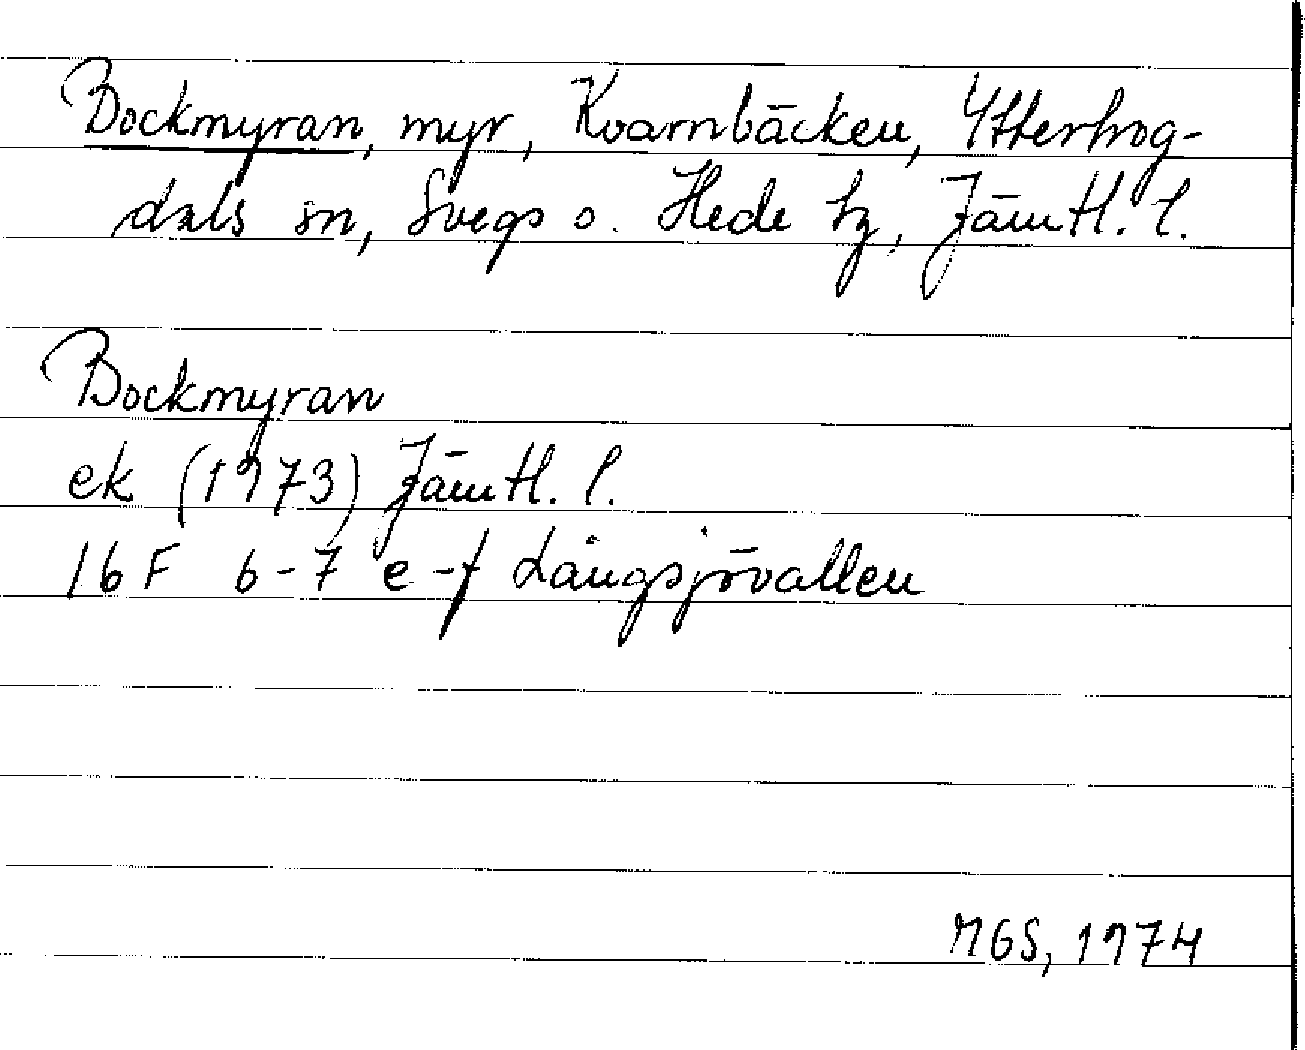 Bockmyran, myr, Kvarnbäcken, Ytterhog-
dals sn, Svegs o. Hede tg, Jämtl. l.
Bockmyran
ek (1973) Jämtl. l.
16 F 6-7 e-f Långsjövallen
MGS, 1974